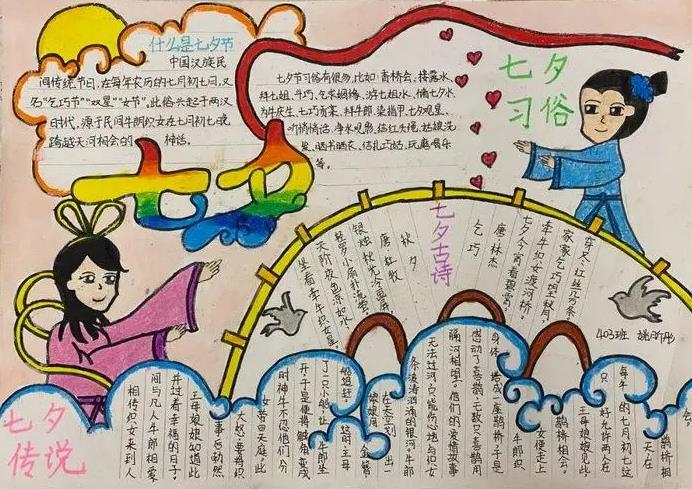 什么是七夕节
中国汉族民
间传统节日，在每年农历的七月初七日，又
名“乞巧节”“双星”“女节”，此俗兴起于两汉
时代，源于民间牛朗织女在七月初七晚
跨越天河相会的 神话。
七夕
七夕节习俗有很多，比如：青桥会、接露水、
拜七姐、斗巧、乞求姻缘、游七姐水、储七夕水、
为牛庆生、七巧香案、拜牛郎、染指甲、七夕观星、
听悄悄话、净水观影、结红头绳、姑娘洗
发、晒书晒衣、结扎巧姑、玩磨喝乐
等。
七夕
习俗
七夕古诗
乞巧
唐 林杰
七夕今宵看碧霄，
牛郎织女渡河桥。
家家乞巧望秋月，
穿尽红丝几万条。
秋夕
唐 杜牧
银烛秋光冷画屏，
轻罗小扇扑流萤。
天阶夜色凉如水，
坐看牵牛织女星。
403班
七夕
传说
相传织女来到人
间与凡人牛郎相爱，
并过着幸福的日子。
王母娘娘知道此
事后勃然
大怒，要将织
女带回天庭，此
时神牛不忍他们分
开，于是便将触角变成
了一只小船，让牛郎坐
船追赶。这时，王母
娘娘用金簪
在天空划出一
条波涛汹涌的银河。牛郎
无法过河，只能伤心地与织女
隔河相望。他们的爱情故事
感动了喜鹊，无数只喜鹊用
身体搭成一座鹊桥，于是
牛郎织
女便走上
鹊桥相会。
王母娘娘见此，
只好允许两人在
每年的七月初七这
天在
鹊桥相
会。